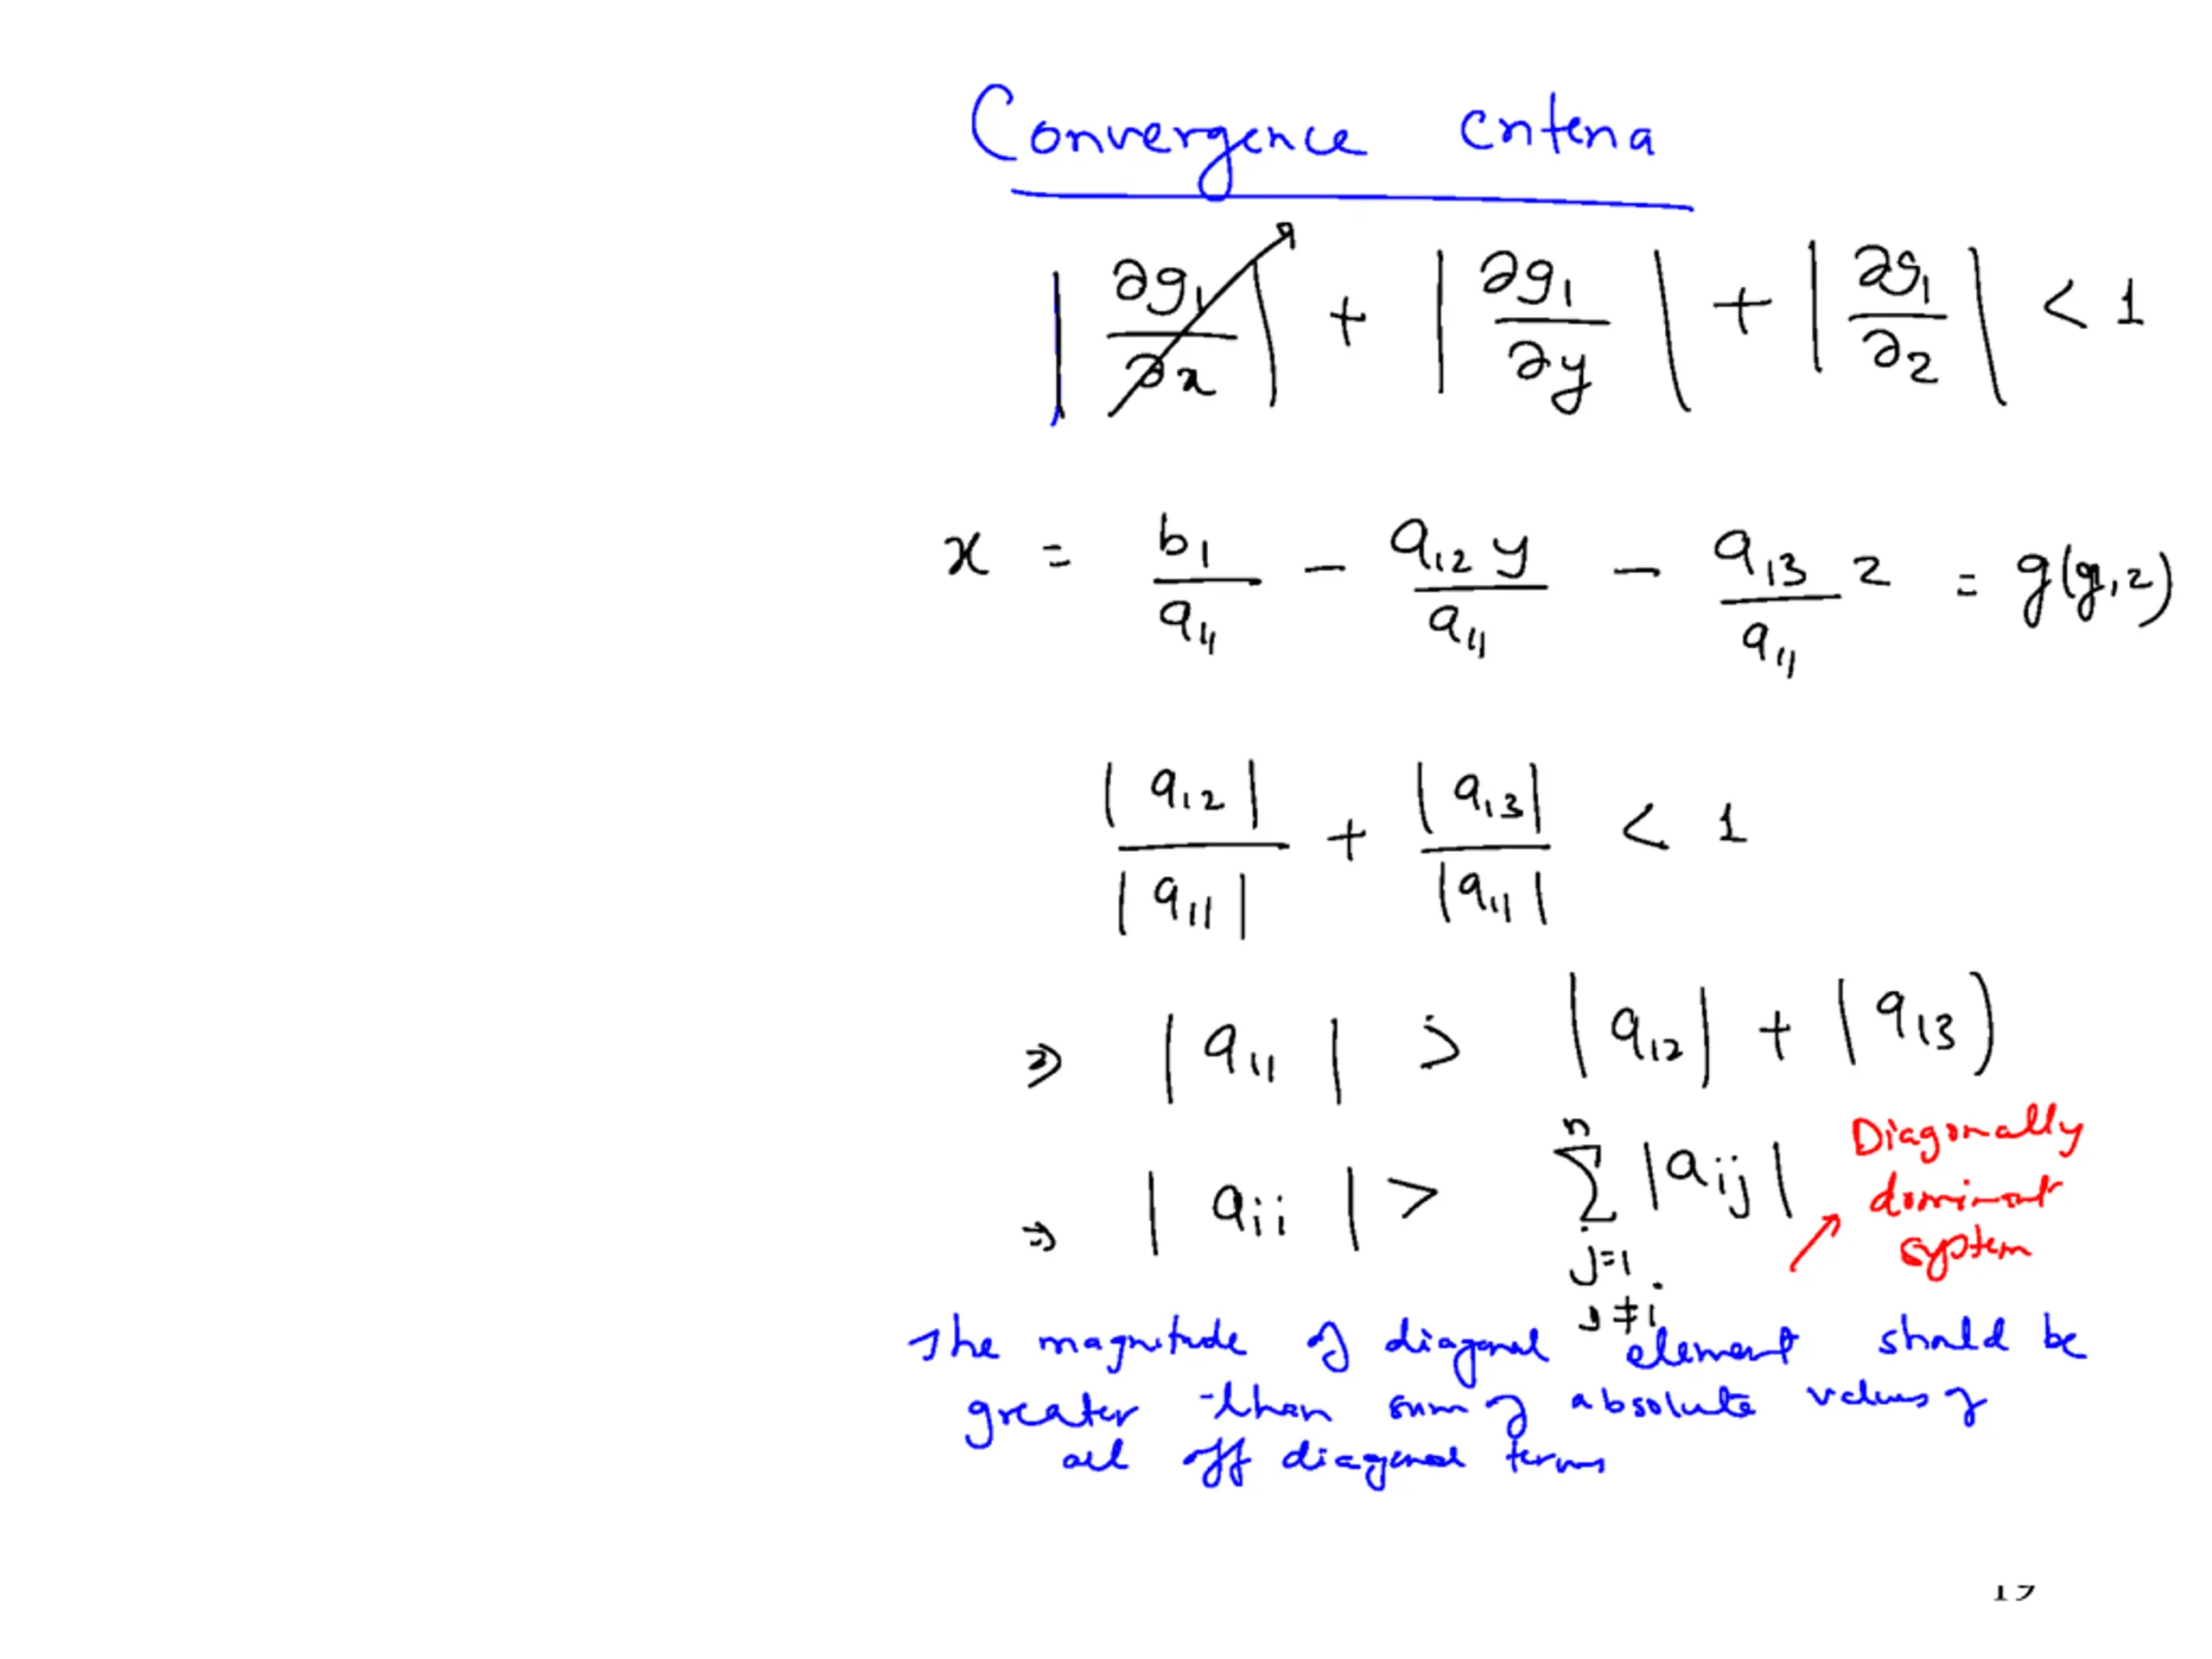 Convergence criteria
| ∂g₁/∂x | + | ∂g₁/∂y | + | ∂g₁/∂z | < 1
x = b₁/a₁₁ - a₁₂ y/a₁₁ - a₁₃ z/a₁₁ = g(y,z)
|a₁₂|/|a₁₁| + |a₁₃|/|a₁₁| < 1
⇒ |a₁₁| > |a₁₂| + |a₁₃|
⇒ |aᵢᵢ| > ∑ⁿ j=1 j≠i |aᵢⱼ|
Diagonally
dominant
system
The magnitude of diagonal element should be
greater than sum of absolute values of
all off diagonal terms